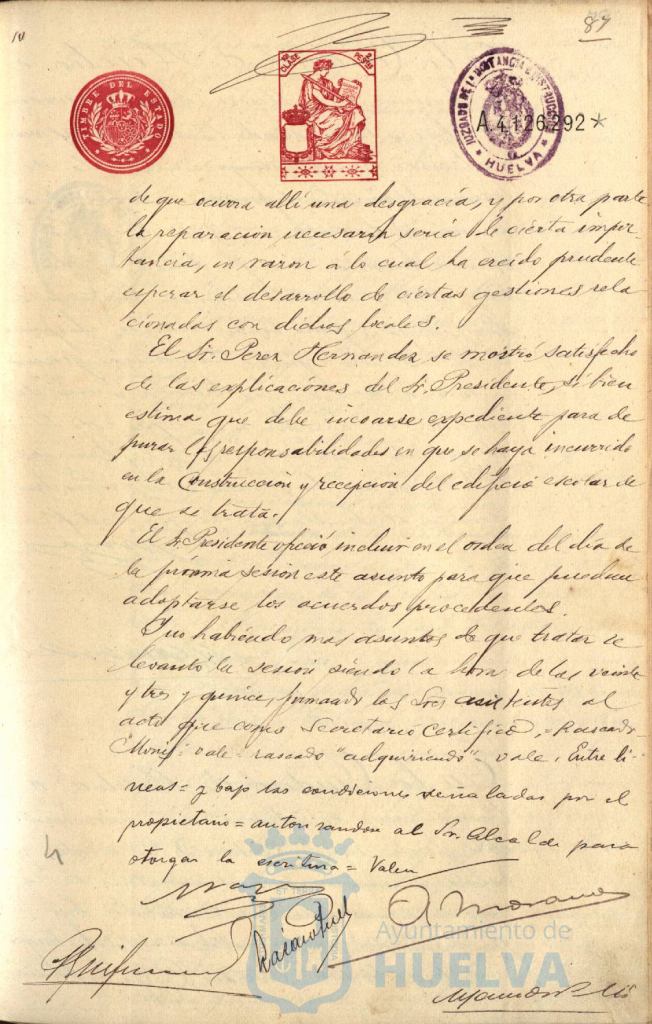 10
87
TIMBRE DEL ESTADO
1ª CLASE
PESETAS
JUZGADO DE 1ª INSTANCIA E INSTRUCCION
* HUELVA *
A.4.126.292*
de que ocurra allí una desgracia, y por otra parte
la reparación necesaria seria de cierta impor-
tancia, en razon á lo cual ha creido prudente
esperar el desarrollo de ciertas gestiones rela
cionadas con dichos locales.
El Sr. Perez Hernandez se mostró satisfecho
de las explicaciones del Sr. Presidente, si bien
estima que debe incoarse expediente para de
purar las responsabilidades en que se haya incurrido
en la Construccion y recepcion del edificio escolar de
que se trata.
El Sr. Presidente ofreció incluir en el orden del día de
la próxima sesion este asunto para que puedan
adoptarse los acuerdos procedentes.
Y no habiendo mas asuntos de que tratar se
levantó la sesion siendo la hora de las veinte
y tres y quince, firmando los Sres asistentes al
acto que como Secretario Certifico. Rascado
vale = rascado "adquiriendo" = vale. Entre lí-
neas = y bajo las condiciones señaladas por el
propietario = autorizandose al Sr. Alcalde para
otorgar la escritura = Valen
A. Moreno
Ayuntamiento de
HUELVA